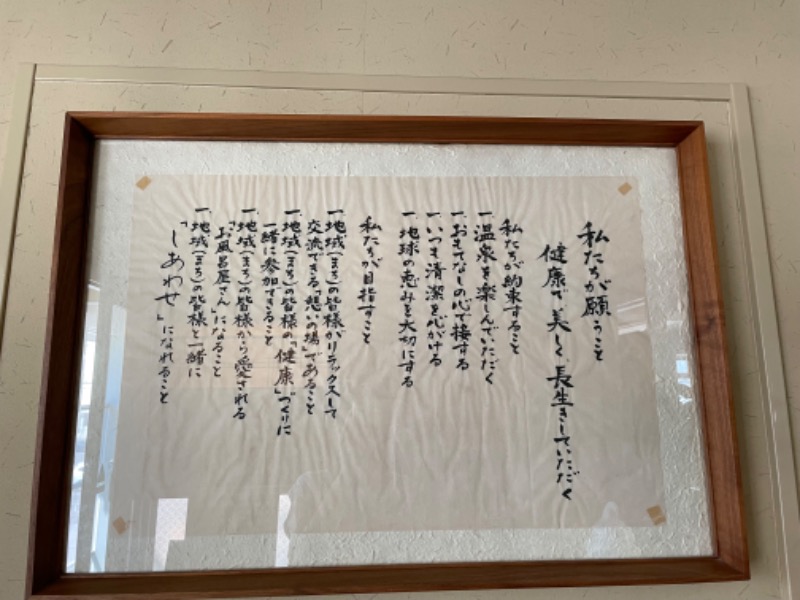 私たちが願うこと
健康で、美しく、長生きしていただく
私たちが約束すること
一、温泉を楽しんでいただく
一、おもてなしの心で接する
一、いつも清潔を心がける
一、地球の恵みを大切にする
私たちが目指すこと
一、地域(まち)の皆様がリラックスして
交流できる「憩いの場」であること
一、地域(まち)の皆様の「健康」づくりに
一緒に参加できること
一、地域(まち)の皆様から愛される
「お風呂屋さん」になること
一、地域(まち)の皆様と一緒に
「しあわせ」になれること